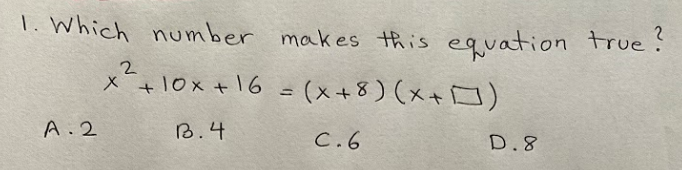 1. Which number makes this equation true?
x² + 10x + 16 = (x+8)(x+□)
A. 2 B. 4 C. 6 D. 8